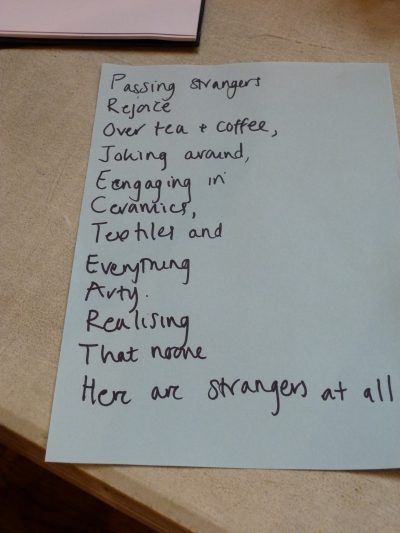 Passing strangers
Rejoice
Over tea + coffee,
Joking around,
Eengaging in
Ceramics,
Textiles and
Everything
Arty.
Realising
That noone
Here are strangers at all